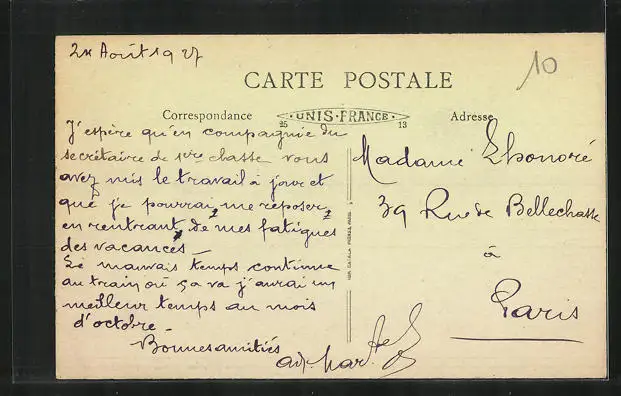 Août 1927
10
CARTE POSTALE
Correspondance
UNIS-FRANCE
25
13
Adresse
J'espère qu'en compagnie du
secrétaire de 1ere chasse vous
avez mis le travail à jour et
que je pourrai me reposer
en rentrant de mes fatigues
des vacances —
Le mauvais temps continue
au train où ça va j'aurai un
meilleur temps au mois
d'octobre —
Bonnes amitiés
Madame Lhonoré
39 Rue de Bellechasse
à
Paris